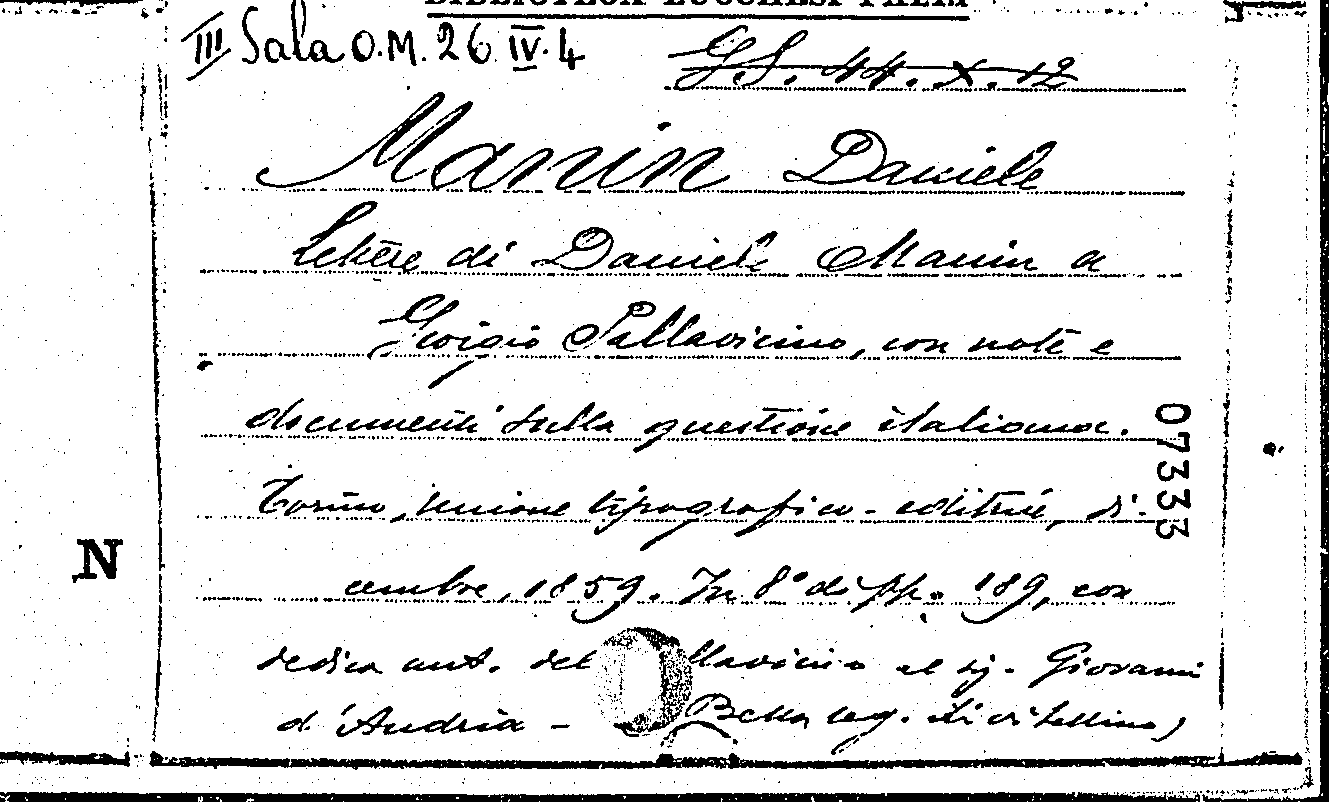 BIBLIOTECA LUCCHESI PALLI
III Sala O.M. 26 IV. 4
G.S. 44. X. 12
Manin Daniele
Lettere di Daniele Manin a
Giorgio Pallavicino, con note e
documenti sulla questione italiana.
Torino, unione tipografico-editrice, di-
cembre, 1859. In 8° di pp. 189, con
dedica aut. del llavicino al sig. Giovanni
d'Andria - Bella leg.
07333
N